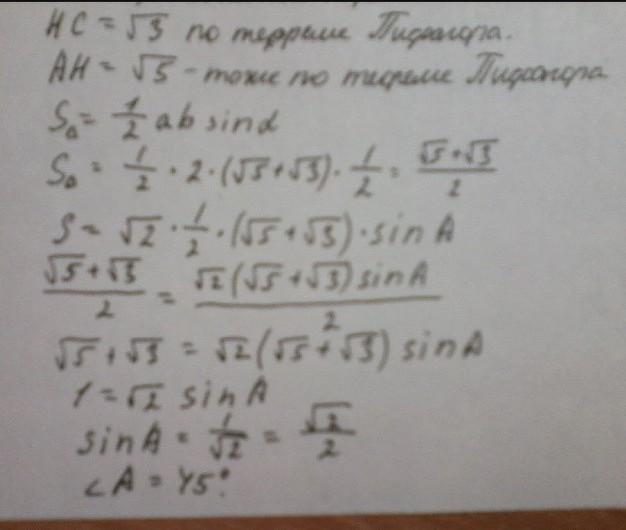 HC = √3 по терреме Пифагора.
AH = √5 - тоже по теореме Пифагора
S△ = 1/2 ab sinα
S△ = 1/2 · 2 · (√5 + √3) · 1/2 = (√5 + √3)/2
S = √2 · 1/2 · (√5 + √3) · sin A
(√5 + √3)/2 = √2 (√5 + √3) sin A/2
√5 + √3 = √2 (√5 + √3) sin A
1 = √2 sin A
sin A = 1/√2 = √2/2
∠A = 45°.